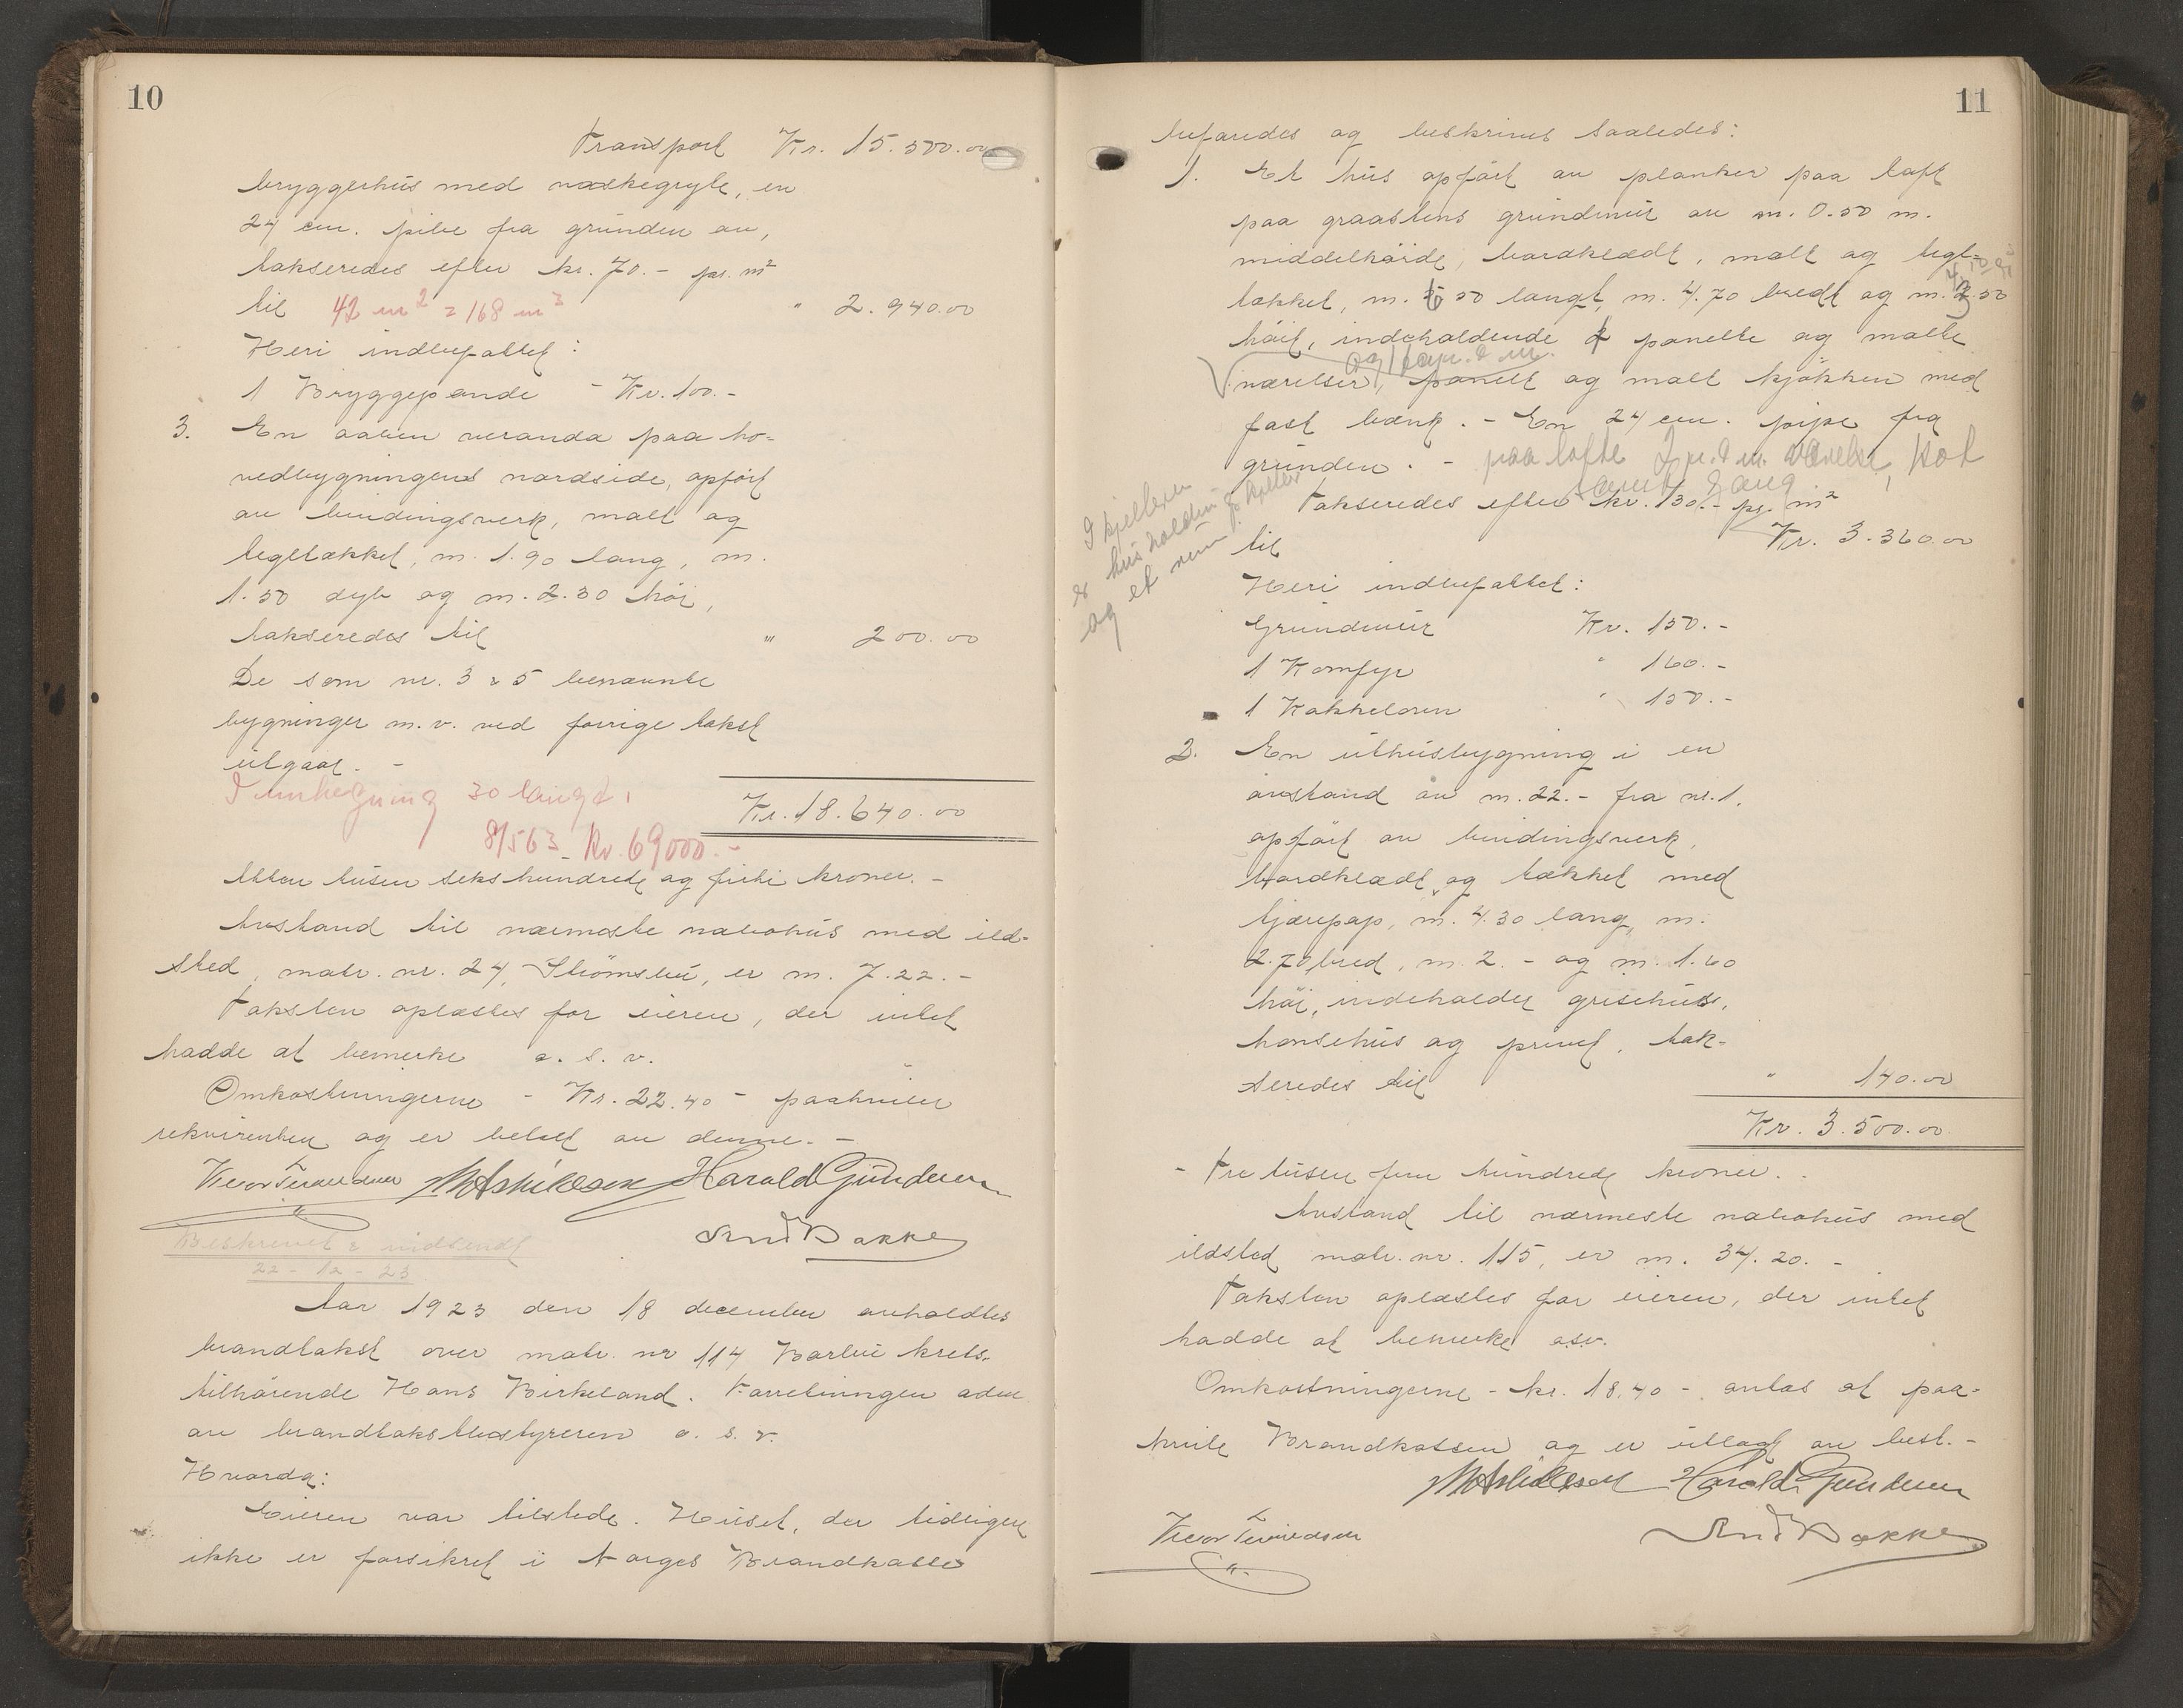 10
Transport Kr. 15.500.00
bryggerhus med vaskegryte, en
24 cm. pibe fra grunden av,
takseredes efter kr. 70.- pr. m²
til 42 m² = 168 m³ " 2.940.00
Heri indbefattet:
1 Bryggepande - Kr. 100.-
3. En aaben veranda paa ho-
vedbygningens nordside, opført
av bindingsverk, malt og
teglækket, m. 1.90 lang, m.
1.50 dyb og m. 2.30 høi,
takseredes til " 200.00
De som nr. 3 & 5 benævnte
bygninger m.v. ved forrige takst
utgaar. -
30
Kr. 18.640.00
8/563 Kr. 69000.-
Atten tusen sekshundrede og firti kroner. -
Avstand til nærmeste nabohus med ild-
sted, matr. nr. 24, Strømsbu, er m. 7.22. -
Taksten oplæstes for eieren, der intet
hadde at bemerke o. s. v.
Omkostningerne - Kr. 22.40 - paahviler
rekvirenten og er betalt av denne. -
Harald Gundersen
And Bakke
Beskrevet & indsendt
22 - 12 - 23
Aar 1923 den 18 december avholdtes
brandtakst over matr. nr 114 Barbu krets,
tilhørende Hans Birkeland. Forretningen adm
av brandtakstbestyreren o. s. v.
Hvorda:
Eieren var tilstede. Huset, der tidligere
ikke er forsikret i Norges Brandkasse
11
befaredes og beskrives saaledes:
1. Et hus opført av planker paa laft
paa graastens grundmur av m. 0.50 m.
middelhøide, bordklædt, malt og tegl-
tækket, m. 5.50 langt, m. 4.70 bredt og m. 3.50
høit, indeholdende 2 panelte og malte
værelser, panelt og malt kjøkken med
fast bænk. - En 24 cm. pipe fra
grunden. - paa lofte 2 p. & m. værelse, kot
samt gang
I kjelleren
er husholdningskjeller
og et rum
Takseredes efter kr. 130.- pr. m²
til Kr. 3.360.00
Heri indbefattet:
Grundmur Kr. 150.-
1 Komfyr " 160.-
1 Kakkelovn " 150.-
2. En uthusbygning i en
avstand av m. 22.- fra nr. 1,
opført av bindingsverk,
bordklædt og tækket med
tjærepap, m. 4.30 lang, m.
2.70 bred, m. 2.- og m. 1.60
høi, indeholder grisehus,
hønsehus og privet, tak-
seredes til " 140.00
Kr. 3.500.00
- Tre tusen fem hundrede kroner. -
Avstand til nærmeste nabohus med
ildsted matr. nr. 115, er m. 34.20. -
Taksten oplæstes for eieren, der intet
hadde at bemerke osv.
Omkostningerne - kr. 18.40 - antas at paa-
hvile Brandkassen og er utlagt av best. -
Harald Gundersen
And Bakke